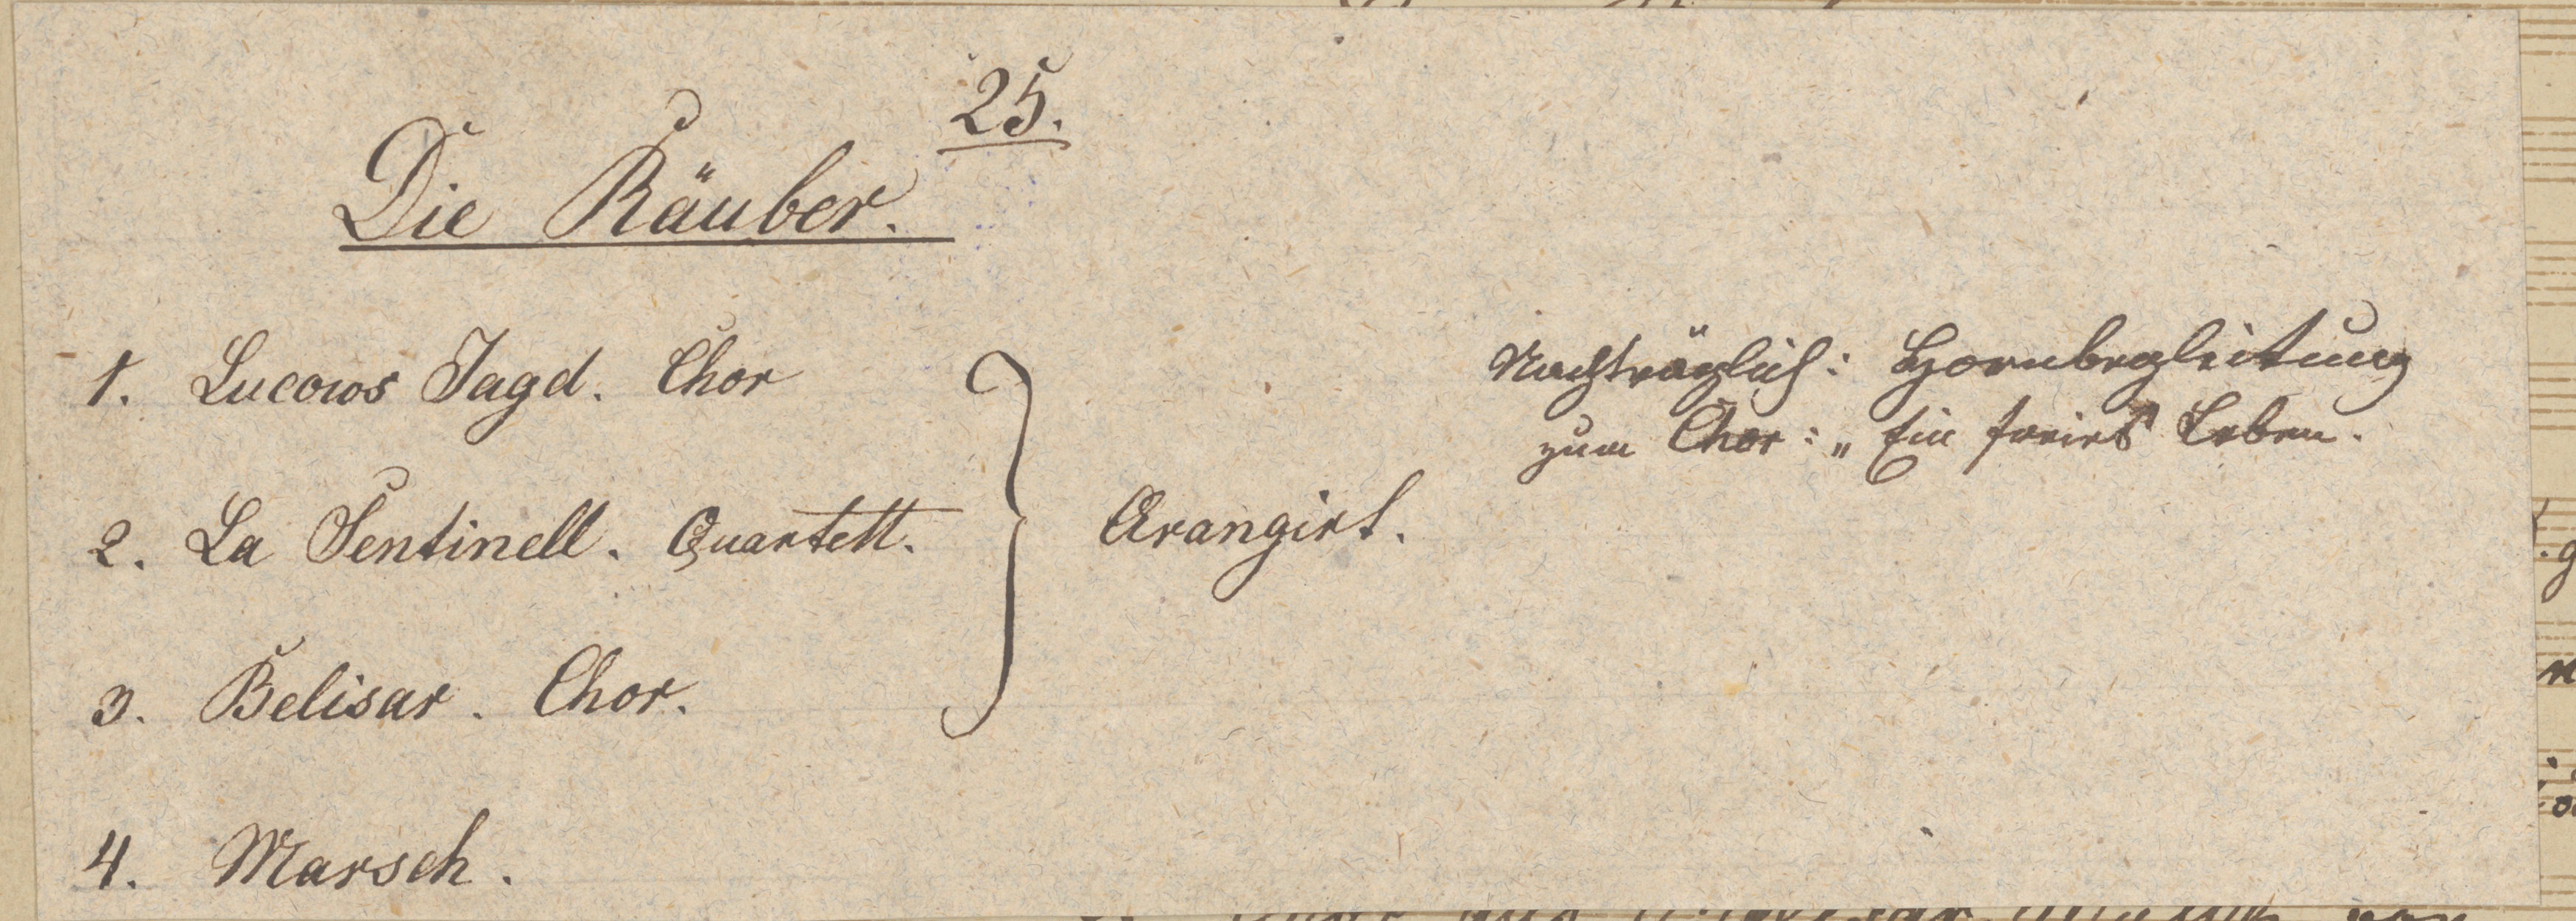 25.
Die Räuber.
1. Lucows Jagd. Chor
2. La Sentinell. Quartett.
3. Belisar. Chor.
4. Marsch.
Arangirt.
Nachträglich: Hornbegleitung
zum Chor: „Ein freies Leben.